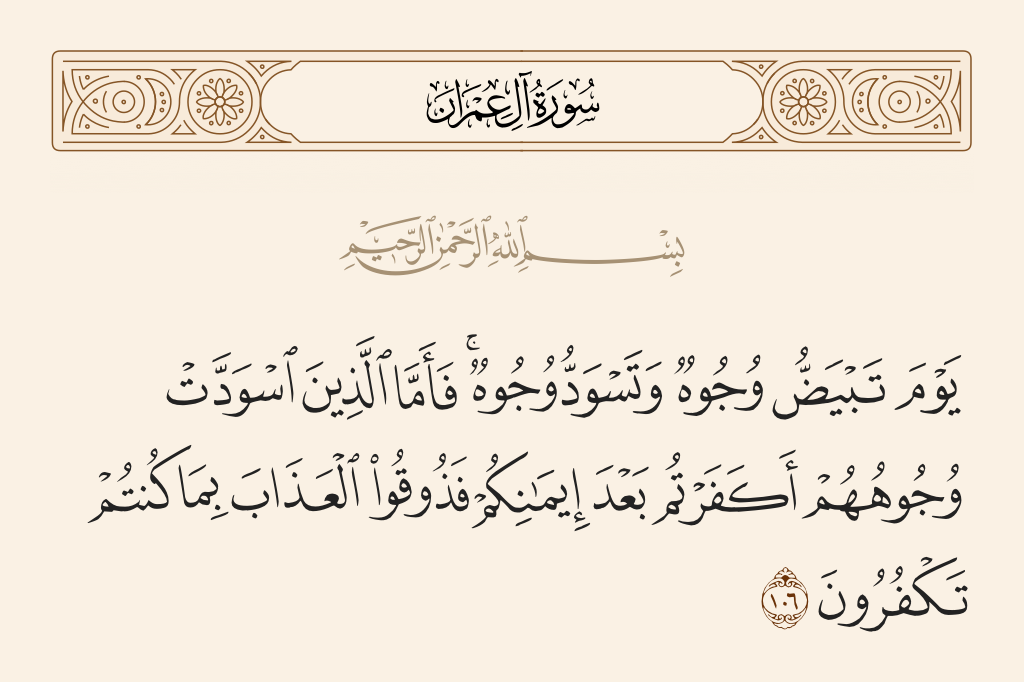 سُورَةُ آلِ عِمْرَانَ
بِسْمِ ٱللَّهِ ٱلرَّحْمَٰنِ ٱلرَّحِيمِ
يَوْمَ تَبْيَضُّ وُجُوهٌ وَتَسْوَدُّ وُجُوهٌ ۚ فَأَمَّا ٱلَّذِينَ ٱسْوَدَّتْ
وُجُوهُهُمْ أَكَفَرْتُم بَعْدَ إِيمَٰنِكُمْ فَذُوقُوا۟ ٱلْعَذَابَ بِمَا كُنتُمْ
تَكْفُرُونَ ١٠٦